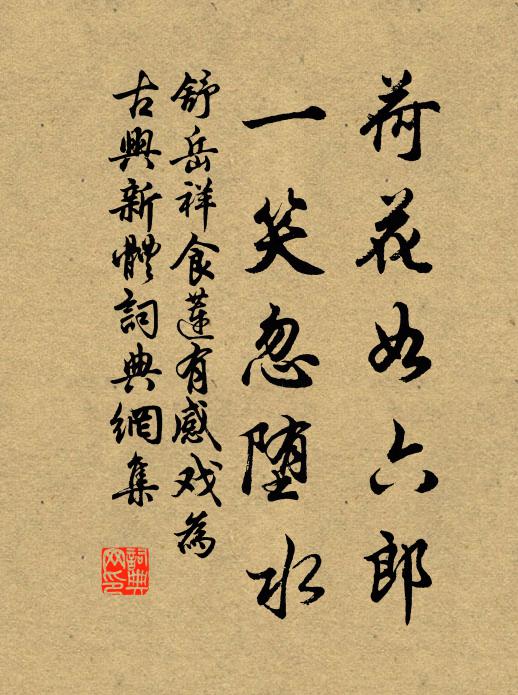 荷花如六郎
一笑忽堕水
舒岳祥食莲有感戏為
古興新體詞典網集
詞典網印